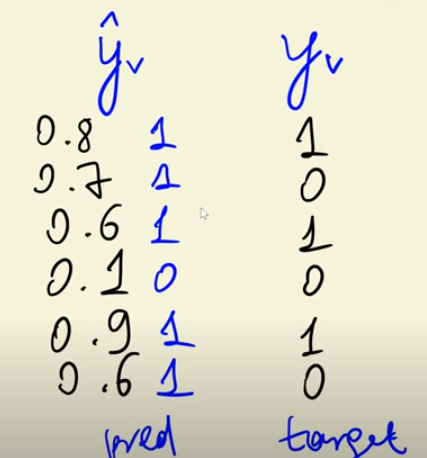 ŷᵥ yᵥ
0.8 1 1
0.7 1 0
0.6 1 1
0.1 0 0
0.9 1 1
0.6 1 0
pred target